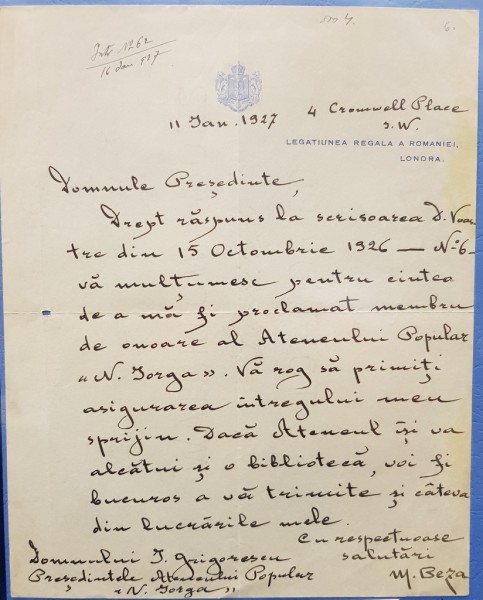 Intr. Nº 62
16 Jan 927
11 Ian. 1927
4 Cromwell Place
S.W.
LEGATIUNEA REGALA A ROMANIEI,
LONDRA.
Domnule Președinte,
Drept răspuns la scrisoarea D. Voas
tre din 15 Octombrie 1926 — Nº 6 —
vă mulțumesc pentru cintea
de a mă fi proclamat membru
de onoare al Ateneului Popular
«N. Iorga». Vă rog să primiți
asigurarea întregului meu
sprijin. Dacă Ateneul își va
alcătui și o bibliotecă, voi fi
bucuros a vă trimite și câteva
din lucrările mele.
Cu respectuoase
salutări
M. Beza
Domnului I. Grigorescu
Președintele Ateneului Popular
«N. Iorga»